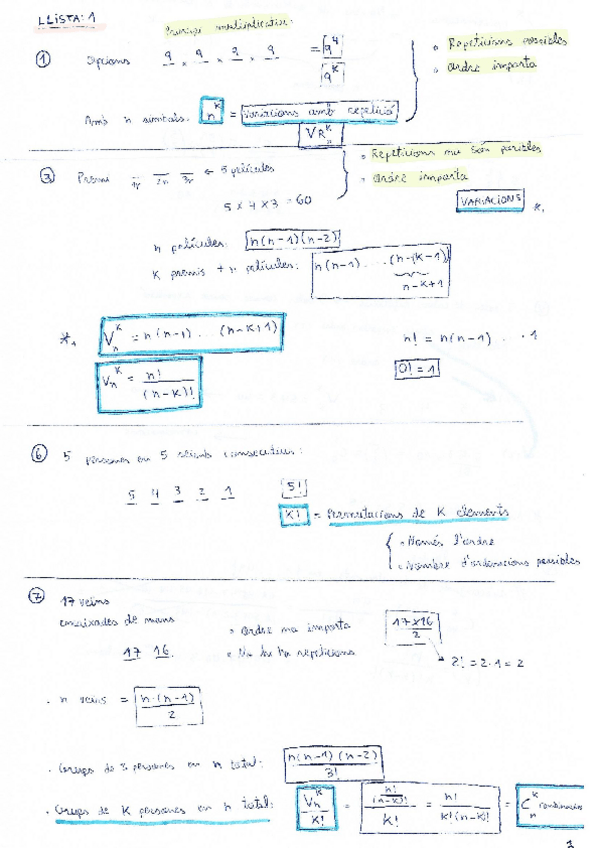 LLISTA: 1
Principi multiplicatiu:
① Opcions 9 × 9 × 9 × 9 = 9^4
9^k
• Repeticions possibles
• Ordre importa
Amb n símbols: n^k = Variacions amb repetició
VR_n^k
③ Premi 1r 2n 3r ← 5 pel·lícules
5 × 4 × 3 = 60
• Repeticions no són possibles
• Ordre importa
VARIACIONS *₁
n pel·lícules: n(n-1)(n-2)
K premis + n pel·lícules: n(n-1) ... (n-(K-1))
n-K+1
*₁ V_n^K = n(n-1) ... (n-K+1)
n! = n(n-1) ... 1
V_n^K = n! / (n-K)!
0! = 1
⑥ 5 persones en 5 seients consecutius:
5 4 3 2 1 5!
K! = Permutacions de K elements
• Només l'ordre
• Nombre d'ordenacions possibles
⑦ 17 veïns
encaixades de mans
17 16
• Ordre no importa
• No hi ha repeticions
17×16 / 2
2! = 2·1 = 2
• n veïns = n·(n-1) / 2
• Grups de 3 persones en n total: n(n-1)(n-2) / 3!
• Grups de K persones en n total: V_n^K / K! = (n! / (n-K)!) / K! = n! / K!(n-K)! = C_n^K combinacions